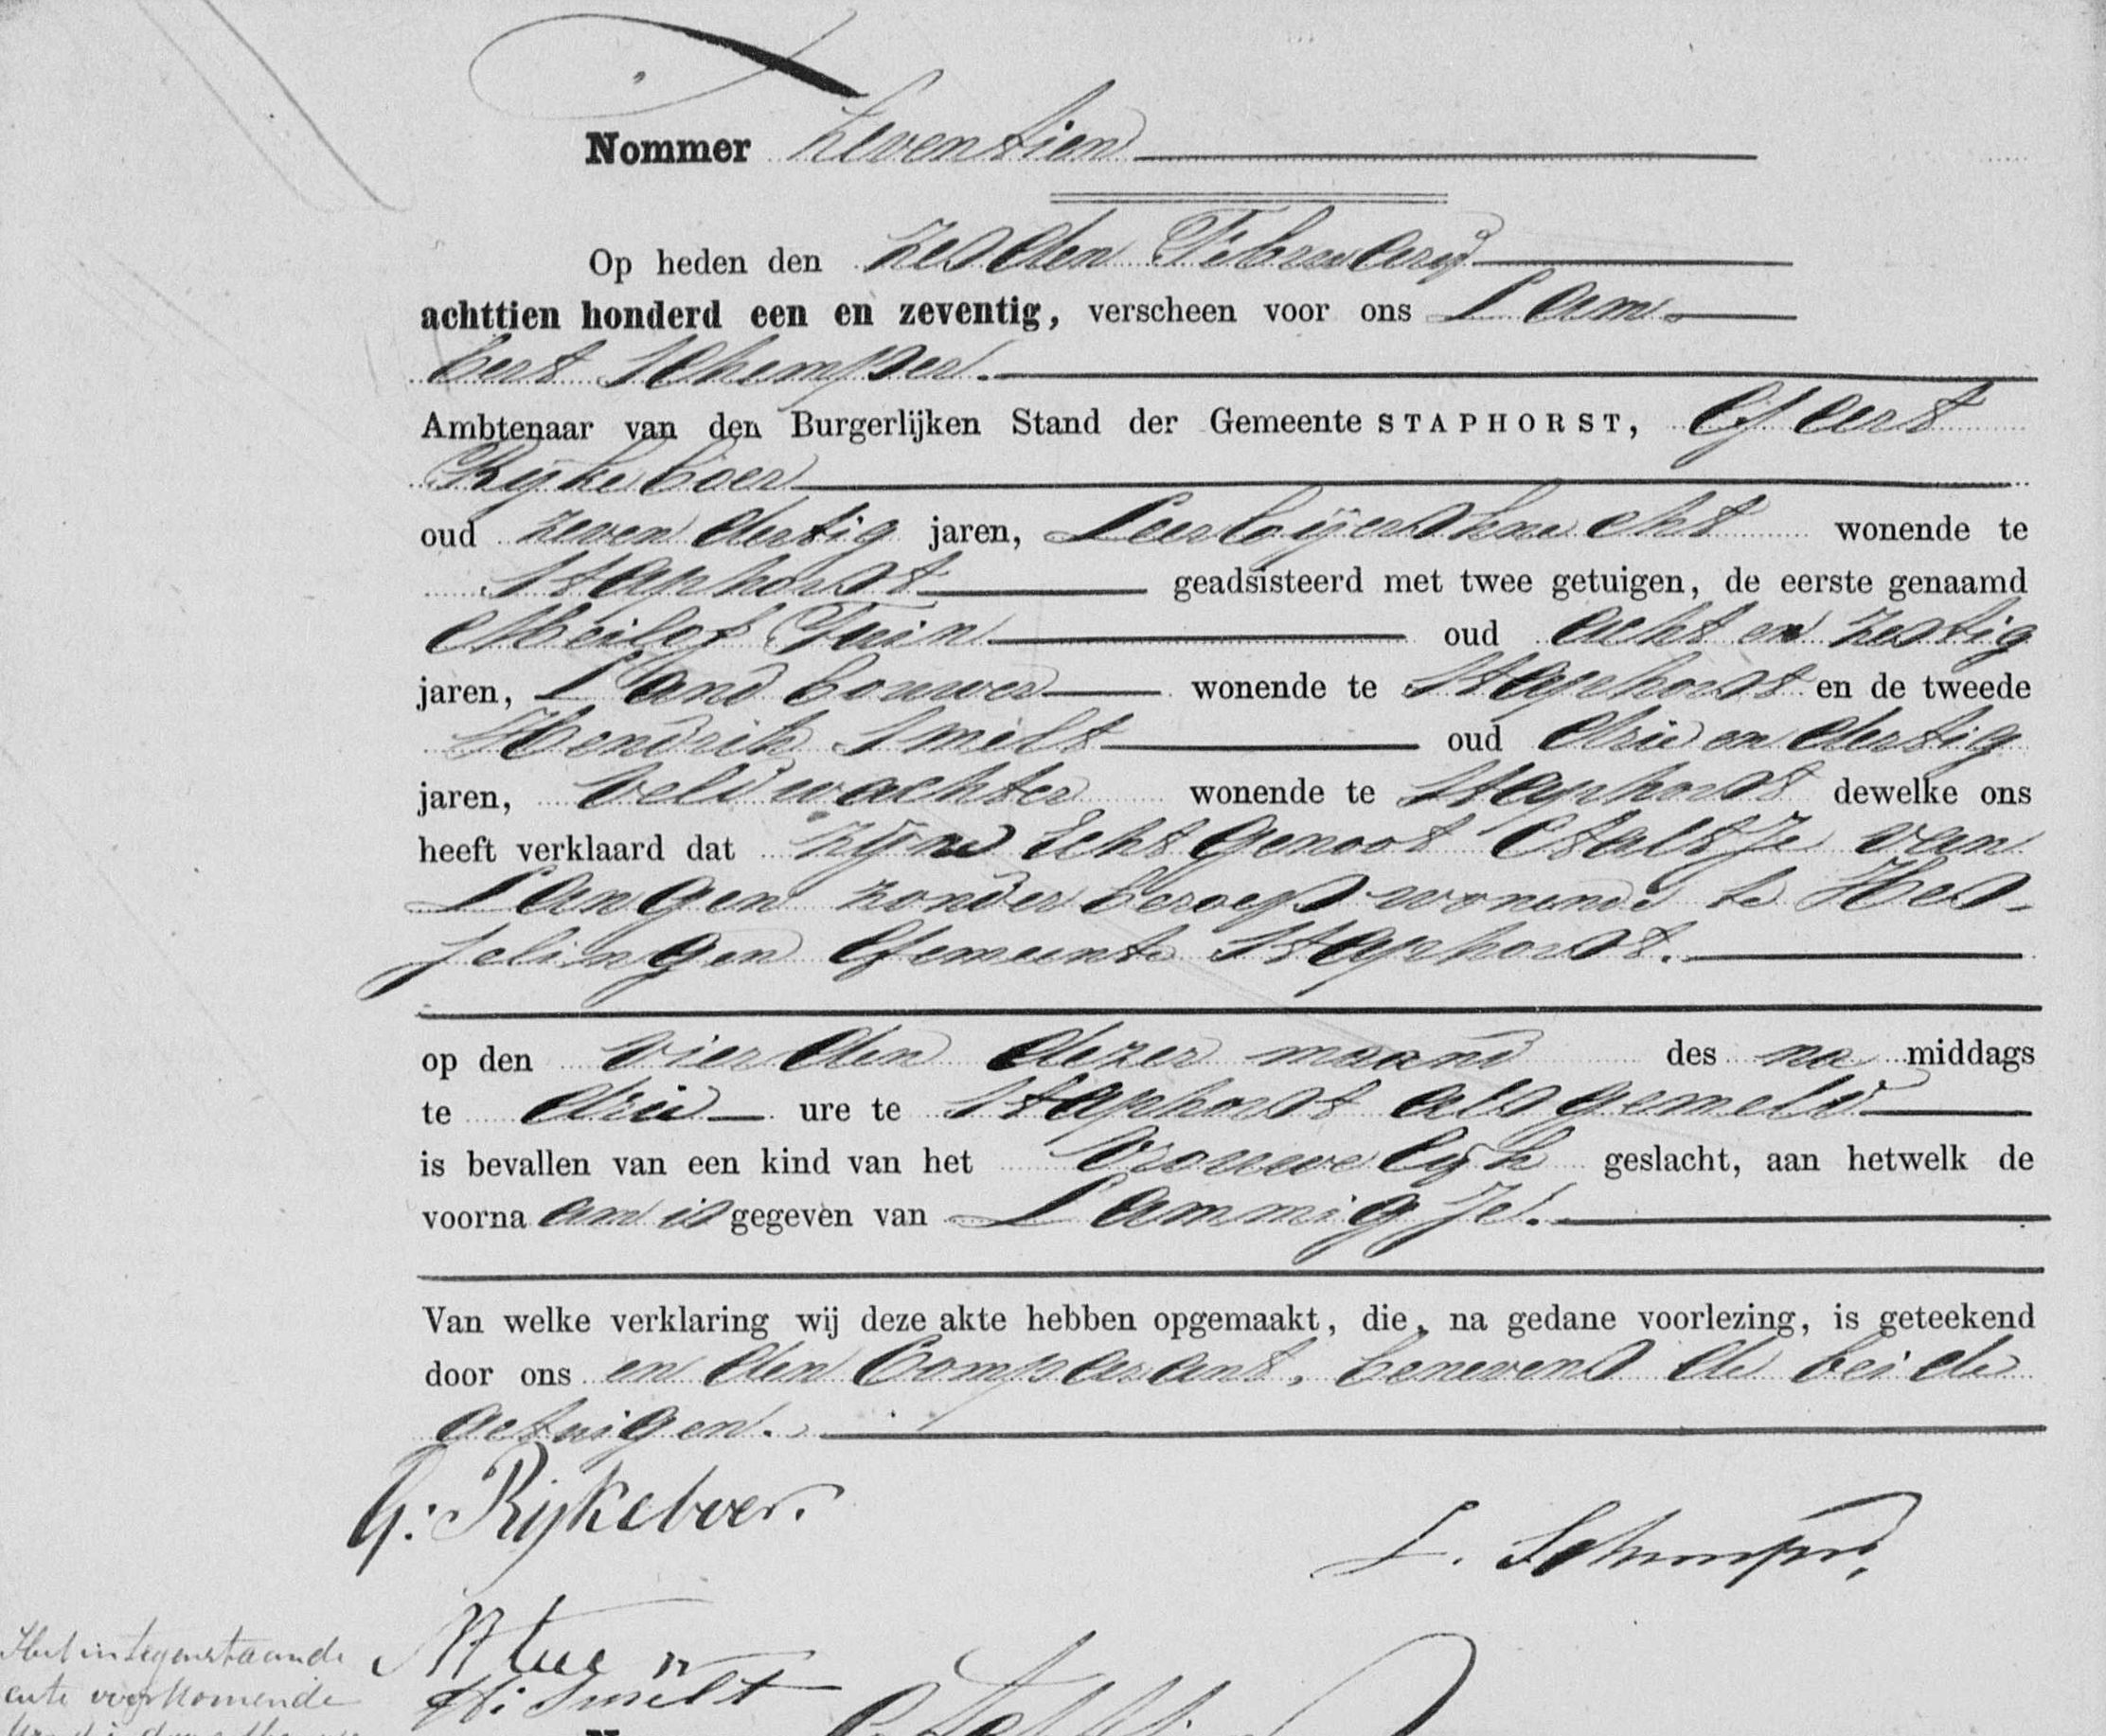 Nommer Zeventien
Op heden den zesden Februarij
achttien honderd een en zeventig, verscheen voor ons Lam-
bert Schemper.
Ambtenaar van den Burgerlijken Stand der Gemeente STAPHORST, Geert
Rijkeboer
oud zeven dertig jaren, Leerloijersknecht wonende te
Staphorst geadsisteerd met twee getuigen, de eerste genaamd
Meilof Tuin oud acht en zestig
jaren, Landbouwer wonende te Staphorst en de tweede
Hendrik Smilt oud drie en dertig
jaren, veldwachter wonende te Staphorst dewelke ons
heeft verklaard dat zijne Echtgenoot Aaltje van
Langen zonder beroep wonende te Hes-
selingen Gemeente Staphorst.
op den vierden dezer maand des na middags
te drie ure te Staphorst als gemeld
is bevallen van een kind van het vrouwelijk geslacht, aan hetwelk de
voorna am is gegeven van Lammigje.
Van welke verklaring wij deze akte hebben opgemaakt, die, na gedane voorlezing, is geteekend
door ons en den Comparant, benevens de beide
getuigen.
G: Rijkeboer.
L. Schemper.
M tuin
H: Smilt
Het in tegenstaande
acte voorkomende